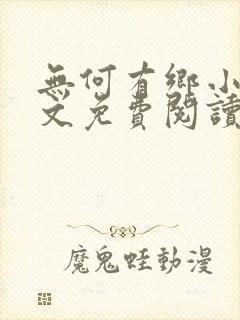 無何有鄉小
文免費閱讀
魔鬼蛙動漫